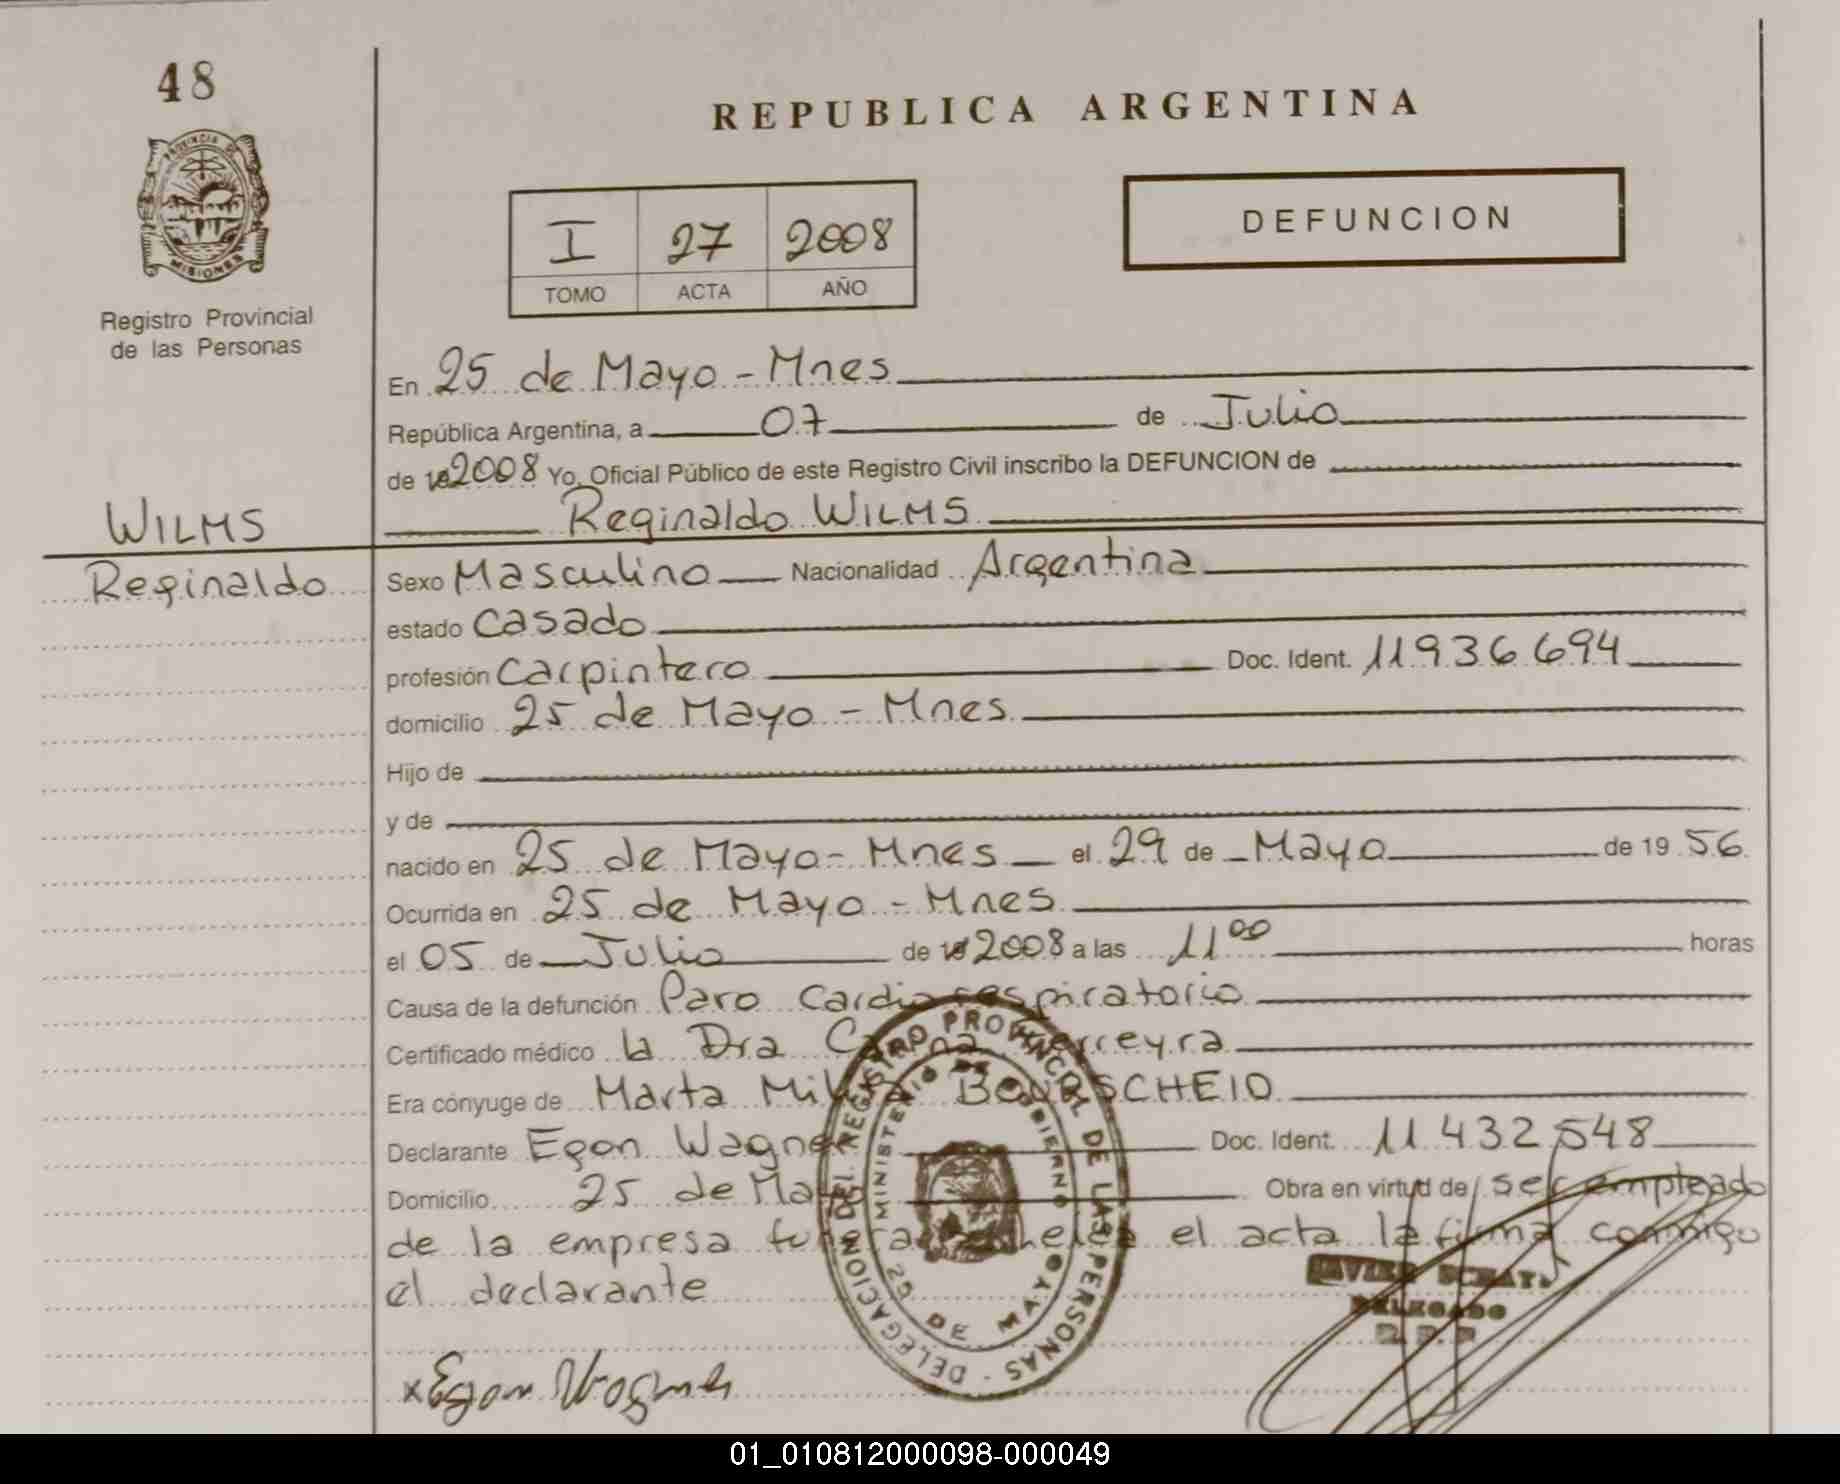 48
REPUBLICA ARGENTINA
PROVINCIA DE
MISIONES
I 27 2008
TOMO ACTA AÑO
DEFUNCION
Registro Provincial
de las Personas
En 25 de Mayo - Mnes
República Argentina, a 07 de Julio
de 2008 Yo, Oficial Público de este Registro Civil inscribo la DEFUNCION de
Reginaldo WILMS
WILMS
Reginaldo
Sexo Masculino Nacionalidad Argentina
estado Casado
profesión Carpintero Doc. Ident. 11936694
domicilio 25 de Mayo - Mnes
Hijo de
y de
nacido en 25 de Mayo - Mnes el 29 de Mayo de 1956
Ocurrida en 25 de Mayo - Mnes
el 05 de Julio de 2008 a las 11 00 horas
Causa de la defunción Paro Cardiorespiratorio
Certificado médico la Dra
Era cónyuge de Marta BOURSCHEID
Declarante Egon Wagner Doc. Ident. 11432548
Domicilio 25 de Mayo Obra en virtud de ser empleado
de la empresa el acta la firma conmigo
el declarante
DELEGACION DEL REGISTRO PROVINCIAL DE LAS PERSONAS
MINISTERIO DE GOBIERNO
25 DE MAYO
DELEGADO
x Egon Wagner
01_010812000098-000049